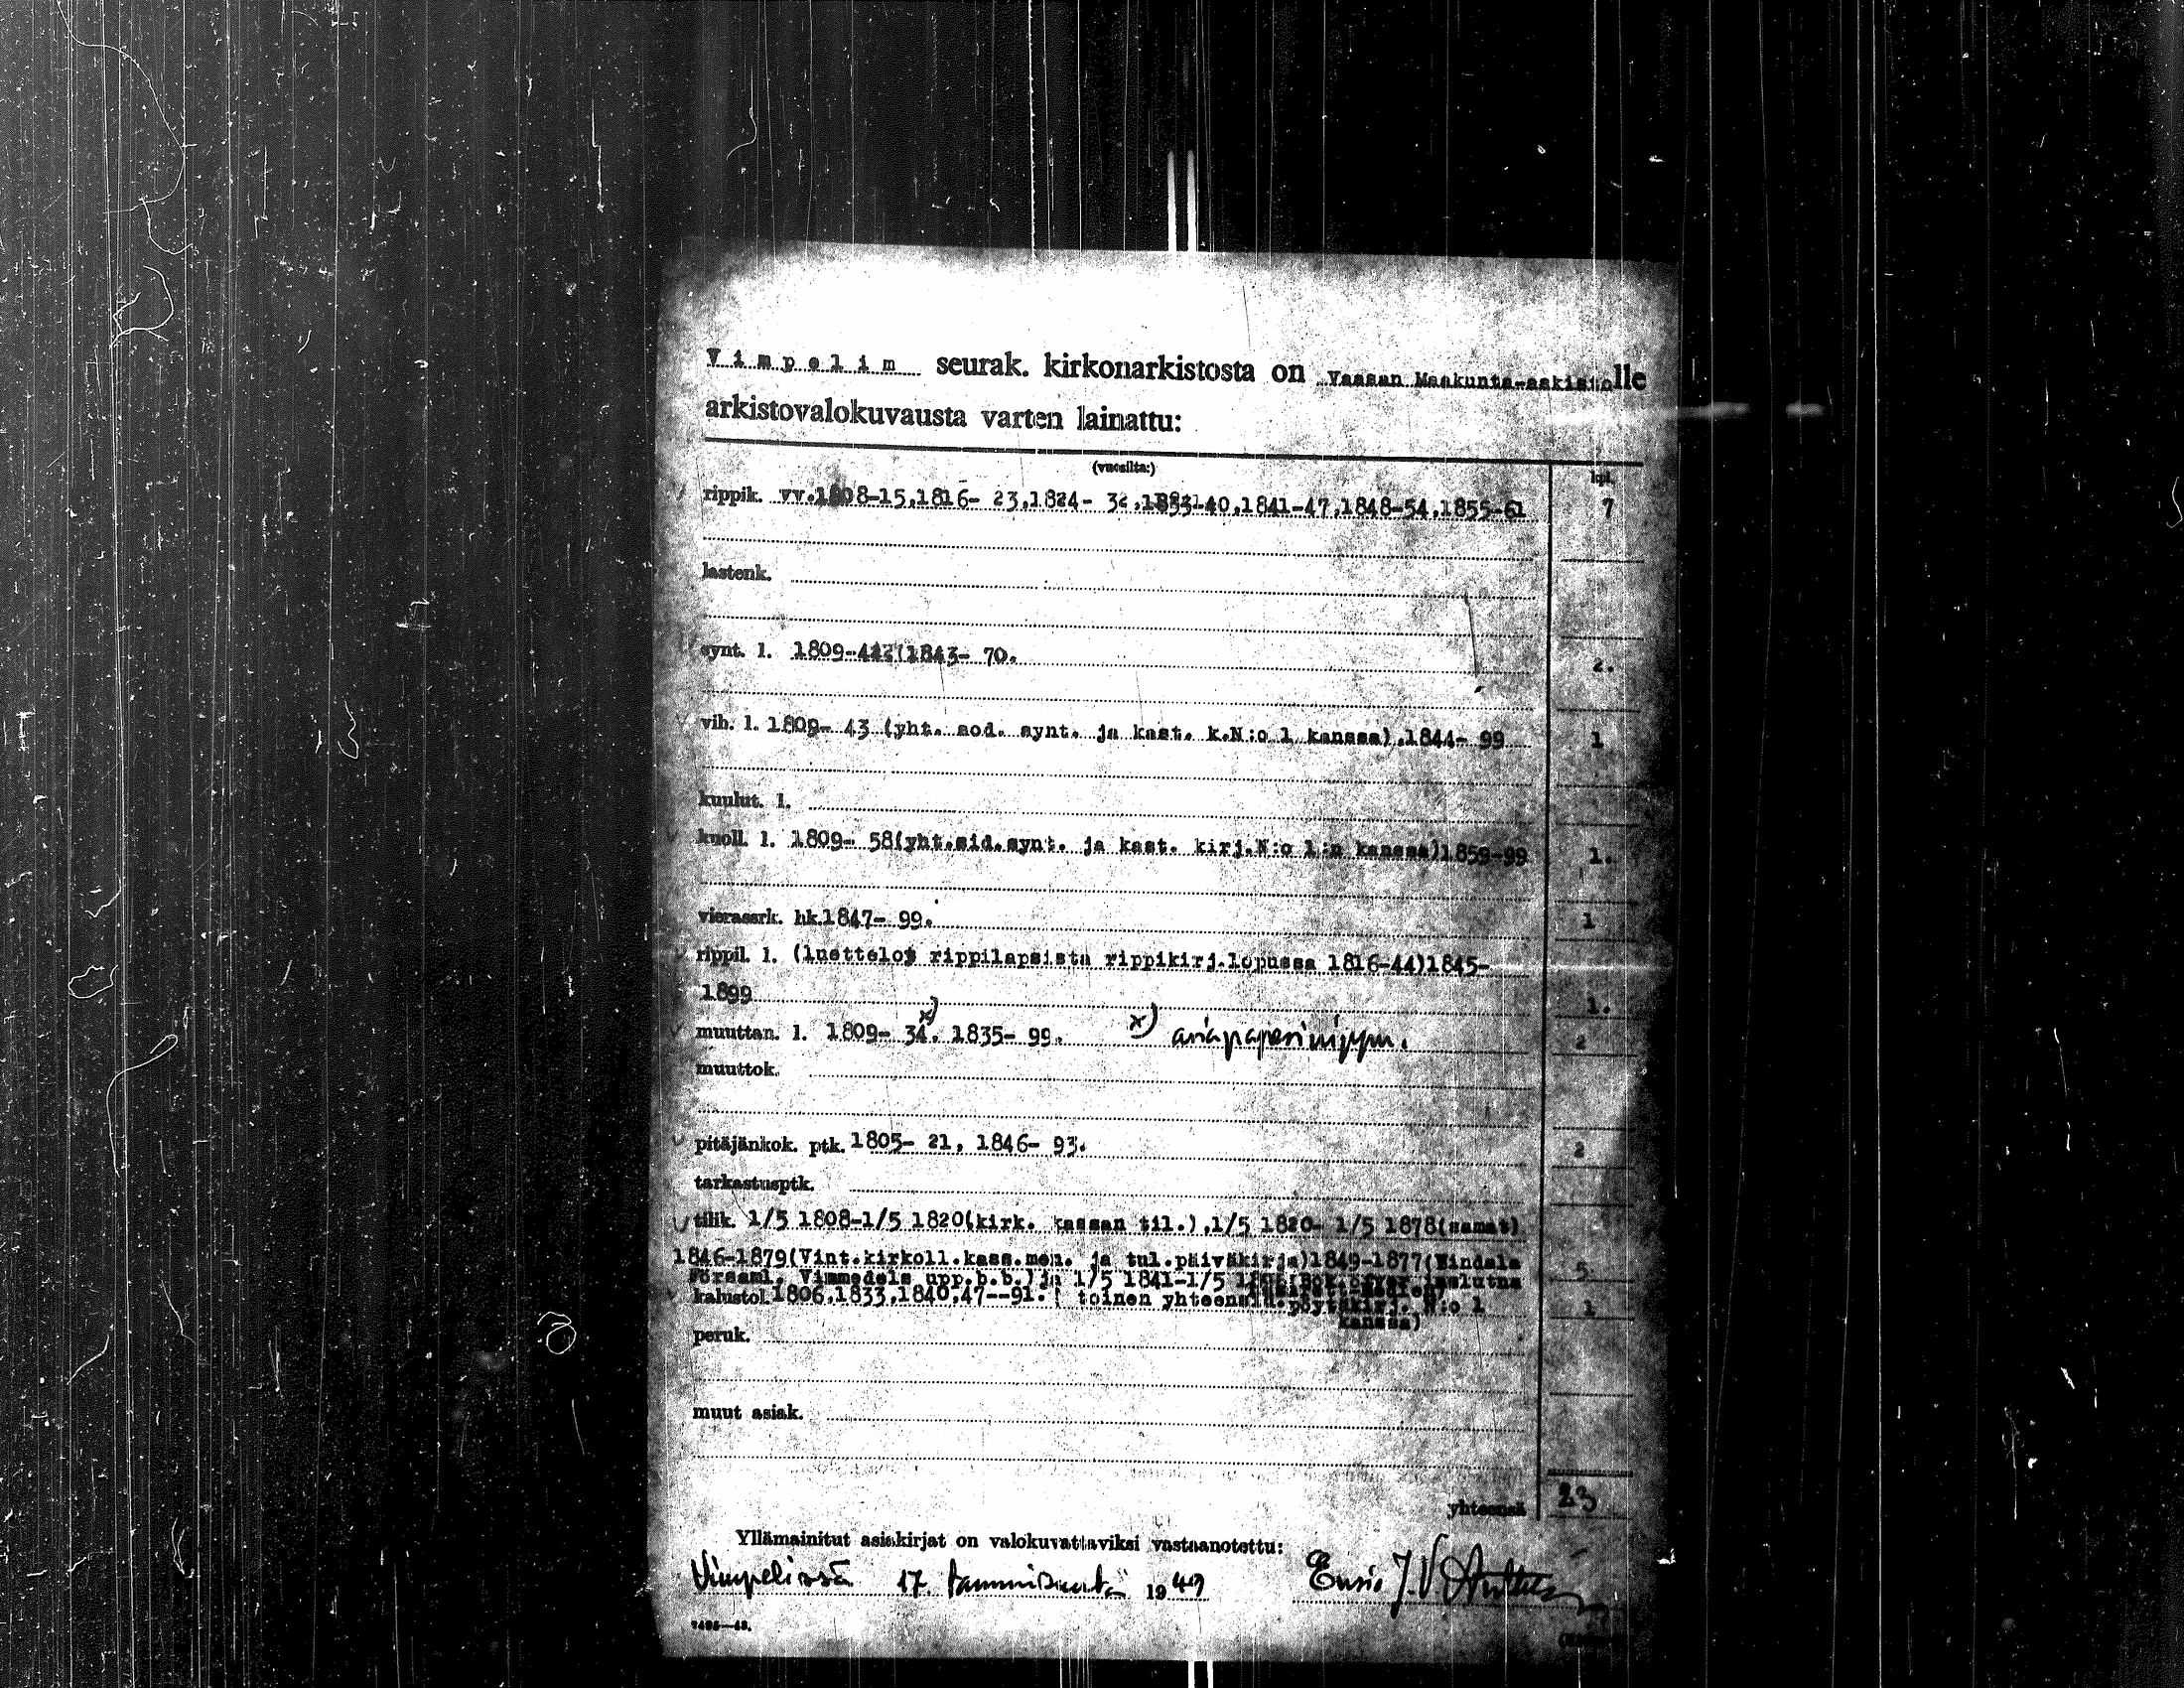 Vimpelin seurak. kirkonarkistosta on Vaasan Maakunta-arkistolle
arkistovalokuvausta varten lainattu:
(vuosilta:) kpl.
rippik. vv.1808-15,1816- 23,1824- 32,1833-40,1841-47,1848-54,1855-61 7
lastenk.
synt. l. 1809-42 (1843- 70. 2.
vih. l. 1809- 43 (yht. sod. synt. ja kast. k.N:o 1 kanssa),1844- 99 1
kuulut. l.
kuoll. l. 1809- 58(yht.sid.synt. ja kast. kirj.N:o 1:n kanssa)1859-99 1.
vierassrk. hk.1847- 99. 1
rippil. l. (luettelot rippilapsista rippikirj.lopussa 1816-44)1845-
1899 1.
muuttan. l. 1809- 34.x) 1835- 99. x) asiapaperinippu. 2
muuttok.
pitäjänkok. ptk. 1805- 21, 1846- 93. 2
tarkastusptk.
tilik. 1/5 1808-1/5 1820(kirk. kassan til.),1/5 1820- 1/5 1878(samat)
1846-1879(Vint.kirkoll.kass.men. ja tul.päiväkirja)1849-1877(Windala 5
Församl. Vimmedels upp.b.b.)ja 1/5 1841-1/5
kalustol. 1806,1833,1840,47--91.( toinen yhteensid.pöytäkirj. N:o 1 1
kanssa)
peruk.
muut asiak.
yhteensä 23
Yllämainitut asiakirjat on valokuvattaviksi vastaanotettu:
Vimpelissä 17. tammikuuta 1949 Ensio J.V.